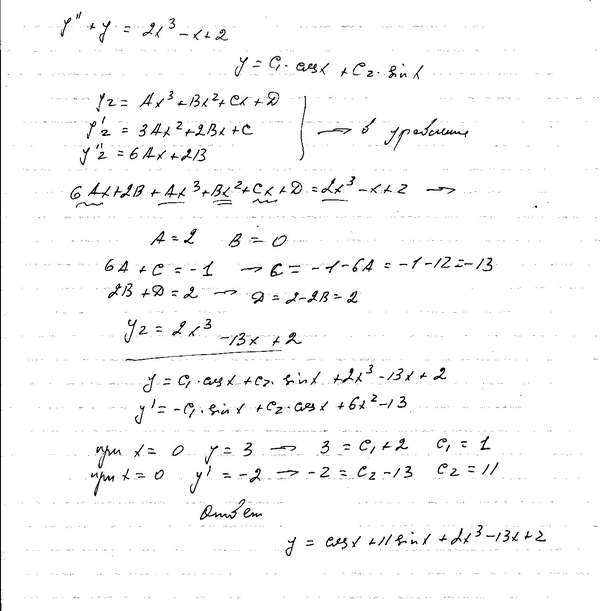 y'' + y = 2x³ - x + 2
y = C₁ · cosx + C₂ · sinx
y₂ = Ax³ + Bx² + Cx + D
y'₂ = 3Ax² + 2Bx + C → в уравнение
y''₂ = 6Ax + 2B
6Ax + 2B + Ax³ + Bx² + Cx + D = 2x³ - x + 2 →
A = 2 B = 0
6A + C = -1 → C = -1 - 6A = -1 - 12 = -13
2B + D = 2 → D = 2 - 2B = 2
y₂ = 2x³ - 13x + 2
y = C₁ · cosx + C₂ · sinx + 2x³ - 13x + 2
y' = -C₁ · sinx + C₂ · cosx + 6x² - 13
при x = 0 y = 3 → 3 = C₁ + 2 C₁ = 1
при x = 0 y' = -2 → -2 = C₂ - 13 C₂ = 11
Ответ
y = cosx + 11 sinx + 2x³ - 13x + 2